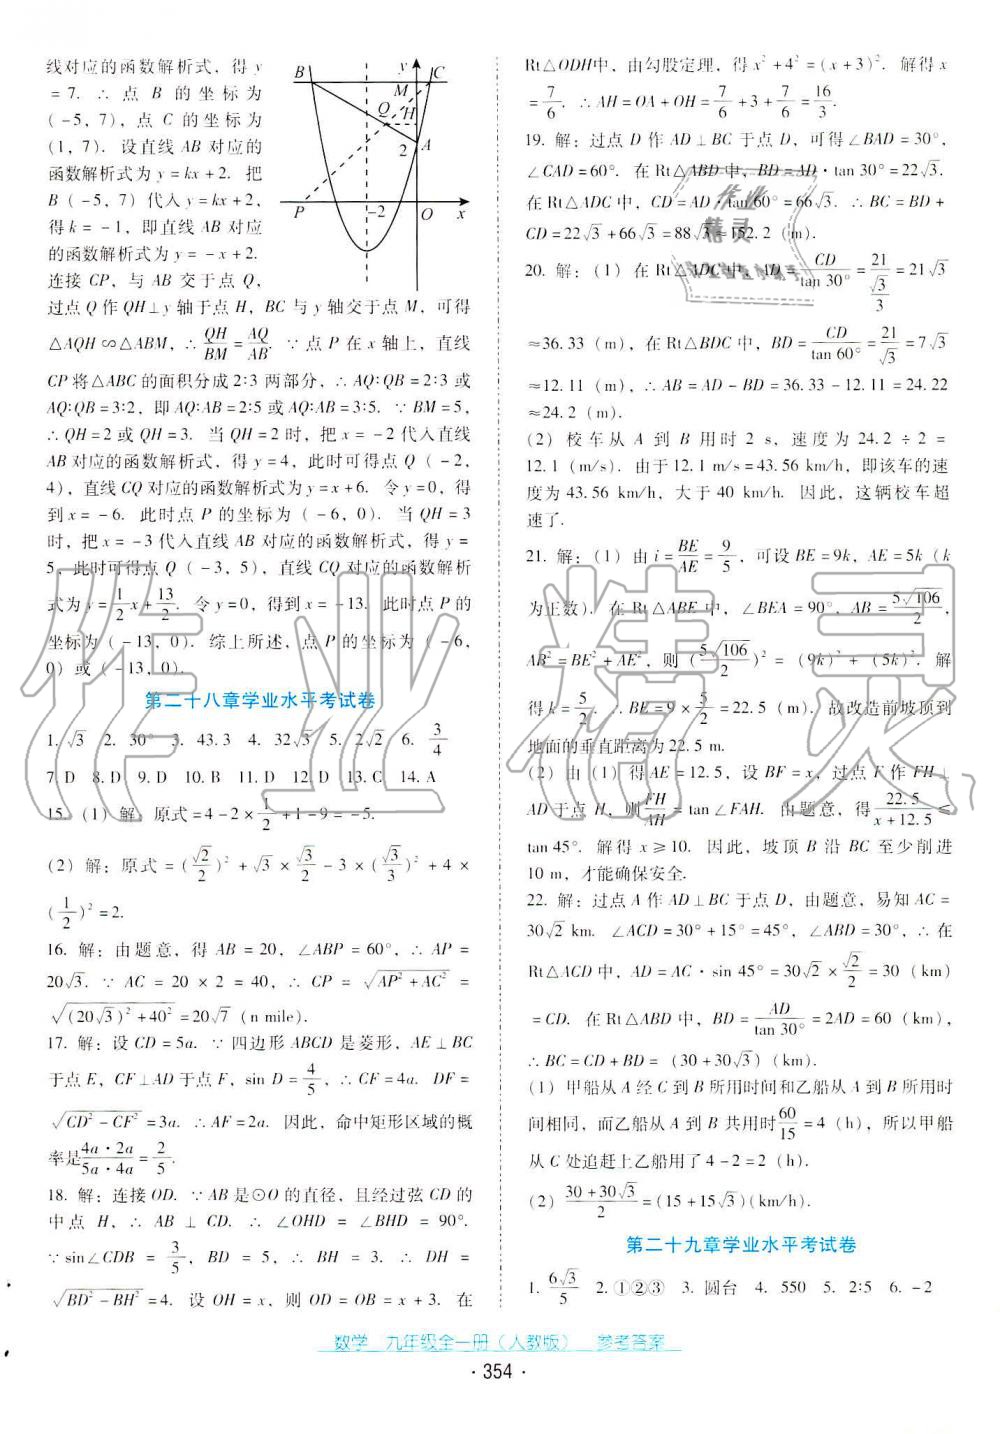 线对应的函数解析式，得 y
= 7. ∴ 点 B 的坐标为
(-5, 7)，点 C 的坐标为
(1, 7). 设直线 AB 对应的
函数解析式为 y = kx + 2. 把
B (-5, 7) 代入 y = kx + 2,
得 k = -1，即直线 AB 对应
的函数解析式为 y = -x + 2.
连接 CP，与 AB 交于点 Q，
过点 Q 作 QH⊥y 轴于点 H，BC 与 y 轴交于点 M，可得
△AQH∽△ABM，∴ QH/BM = AQ/AB. ∵ 点 P 在 x 轴上，直线
CP 将△ABC 的面积分成 2∶3 两部分，∴ AQ∶QB = 2∶3 或
AQ∶QB = 3∶2，即 AQ∶AB = 2∶5 或 AQ∶AB = 3∶5. ∵ BM = 5，
∴ QH = 2 或 QH = 3. 当 QH = 2 时，把 x = -2 代入直线
AB 对应的函数解析式，得 y = 4，此时可得点 Q (-2,
4)，直线 CQ 对应的函数解析式为 y = x + 6. 令 y = 0，得
到 x = -6. 此时点 P 的坐标为 (-6, 0). 当 QH = 3
时，把 x = -3 代入直线 AB 对应的函数解析式，得 y =
5，此时可得点 Q (-3, 5)，直线 CQ 对应的函数解析
式为 y = 1/2 x + 13/2. 令 y = 0，得到 x = -13. 此时点 P 的
坐标为 (-13, 0). 综上所述，点 P 的坐标为 (-6,
0) 或 (-13, 0).
B y C M H Q 2 A P -2 O x
第二十八章学业水平考试卷
1. √3 2. 30° 3. 43.3 4. 32√3 5. 2√2 6. 3/4
7. D 8. D 9. D 10. B 11. D 12. D 13. C 14. A
15. (1) 解：原式 = 4 - 2 × 1/2 + 1 - 9 = -5.
(2) 解：原式 = (√2/2)² + √3 × √3/2 - 3 × (√3/3)² + 4 ×
(1/2)² = 2.
16. 解：由题意，得 AB = 20，∠ABP = 60°，∴ AP =
20√3. ∵ AC = 20 × 2 = 40，∴ CP = √(AP² + AC²) =
√((20√3)² + 40²) = 20√7 (n mile).
17. 解：设 CD = 5a. ∵ 四边形 ABCD 是菱形，AE⊥BC
于点 E，CF⊥AD 于点 F，sin D = 4/5，∴ CF = 4a. DF =
√(CD² - CF²) = 3a. ∴ AF = 2a. 因此，命中矩形区域的概
率是 4a·2a/5a·4a = 2/5.
18. 解：连接 OD. ∵ AB 是⊙O 的直径，且经过弦 CD 的
中点 H，∴ AB⊥CD. ∴ ∠OHD = ∠BHD = 90°.
∵ sin∠CDB = 3/5，BD = 5，∴ BH = 3. ∴ DH =
√(BD² - BH²) = 4. 设 OH = x，则 OD = OB = x + 3. 在
Rt△ODH 中，由勾股定理，得 x² + 4² = (x + 3)². 解得 x
= 7/6. ∴ AH = OA + OH = 7/6 + 3 + 7/6 = 16/3.
19. 解：过点 D 作 AD⊥BC 于点 D，可得∠BAD = 30°，
∠CAD = 60°. 在 Rt△ABD 中，BD = AD·tan 30° = 22√3.
在 Rt△ADC 中，CD = AD·tan 60° = 66√3. ∴ BC = BD +
CD = 22√3 + 66√3 = 88√3 ≈ 152.2 (m).
20. 解：(1) 在 Rt△ADC 中，AD = CD/tan 30° = 21/(√3/3) = 21√3
≈ 36.33 (m)，在 Rt△BDC 中，BD = CD/tan 60° = 21/√3 = 7√3
≈ 12.11 (m)，∴ AB = AD - BD = 36.33 - 12.11 = 24.22
≈ 24.2 (m).
(2) 校车从 A 到 B 用时 2 s，速度为 24.2 ÷ 2 =
12.1 (m/s). 由于 12.1 m/s = 43.56 km/h，即该车的速
度为 43.56 km/h，大于 40 km/h. 因此，这辆校车超
速了.
21. 解：(1) 由 i = BE/AE = 9/5，可设 BE = 9k，AE = 5k (k
为正数). 在 Rt△ABE 中，∠BEA = 90°. AB = 5√106/2，
AB² = BE² + AE²，则 (5√106/2)² = (9k)² + (5k)². 解
得 k = 5/2. ∴ BE = 9 × 5/2 = 22.5 (m). 故改造前坡顶到
地面的垂直距离为 22.5 m.
(2) 由 (1) 得 AE = 12.5，设 BF = x，过点 F 作 FH⊥
AD 于点 H，则 FH/AH = tan∠FAH. 由题意，得 22.5/(x + 12.5) ≤
tan 45°. 解得 x ≥ 10. 因此，坡顶 B 沿 BC 至少削进
10 m，才能确保安全.
22. 解：过点 A 作 AD⊥BC 于点 D，由题意，易知 AC =
30√2 km. ∠ACD = 30° + 15° = 45°，∠ABD = 30°，∴ 在
Rt△ACD 中，AD = AC·sin 45° = 30√2 × √2/2 = 30 (km)
= CD. 在 Rt△ABD 中，BD = AD/tan 30° = 2AD = 60 (km)，
∴ BC = CD + BD = (30 + 30√3) (km).
(1) 甲船从 A 经 C 到 B 所用时间和乙船从 A 到 B 所用时
间相同，而乙船从 A 到 B 共用时 60/15 = 4 (h)，所以甲船
从 C 处追赶上乙船用了 4 - 2 = 2 (h).
(2) (30 + 30√3)/2 = (15 + 15√3) (km/h).
第二十九章学业水平考试卷
1. 6√3/5 2. ①②③ 3. 圆台 4. 550 5. 2∶5 6. -2
数学 九年级全一册（人教版） 参考答案
· 354 ·
作业精灵
作业
精灵